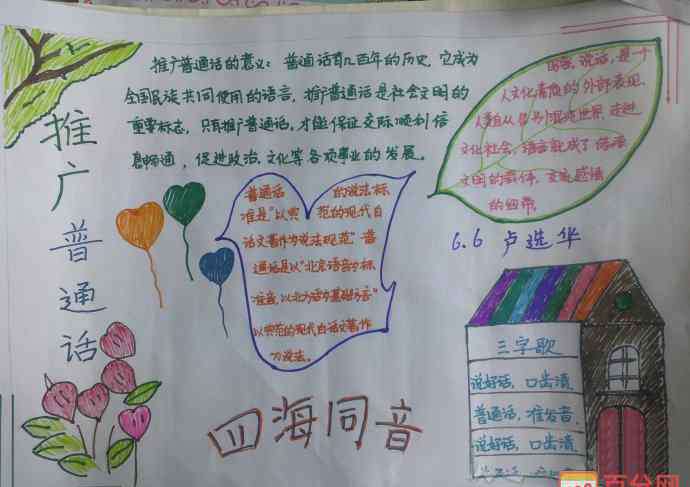 推广普通话
推广普通话的意义：普通话有几百年的历史，它成为
全国民族共同使用的语言，推广普通话是社会文明的
重要标志，只有推广普通话，才能保证交际顺利信
息畅通，促进政治、文化等各项事业的发展。
说话，是一个
人文化素质的外部表现，
人类自从
文化社会，语言就成了
文明的载体，交流感情
的纽带。
6.6 卢选华
普通话的说法标
准是"以典范的现代白
话文著作为说法规范"普
通话是以"北京语音为标
准音，以北方话为基础方言"
以典范的现代白话文著作
为说法。
三字歌
说好话，口出清，
普通话，准发音，
说好话，口出清，
四海同音
百分网